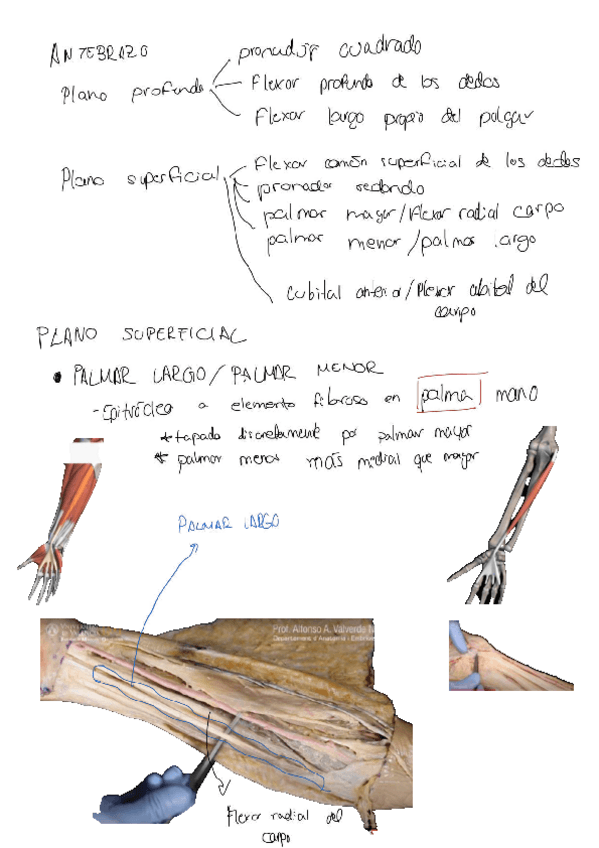 ANTEBRAZO
pronador cuadrado
Plano profundo
Flexor profundo de los dedos
Flexor largo propio del pulgar
Flexor común superficial de los dedos
Plano superficial
pronador redondo
palmar mayor/Flexor radial carpo
palmar menor/palmar largo
Cubital anterior/Flexor cubital del
carpo
PLANO SUPERFICIAL
• PALMAR LARGO/PALMAR MENOR
- Epitróclea a elemento fibroso en palma mano
* tapado discretamente por palmar mayor
* palmar menor más medial que mayor
PALMAR LARGO
Prof. Alfonso A. Valverde
Departament d'Anatomia i
Flexor radial del
carpo